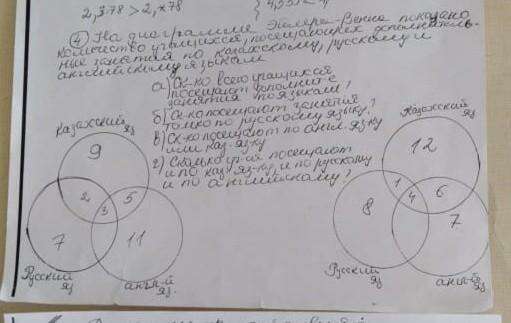 2,378 > 2,*78
④ На диаграмме Эйлера-Венна показано
количество учащихся, посещающих дополнитель-
ные занятия по казахскому, русскому и
английскому языкам
а) Ск-ко всего учащихся
посещают дополнит-е
занятия по языкам?
б) Ск-ко посещают занятия
только по русскому языку?
в) Ск-ко посещают по англ. языку
или каз. языку
г) Сколько уч-ся посещают
и по каз. яз-ку, и по русскому
и по английскому?
Казахский
яз
9
2
3
5
7
11
Русский
яз
англ-й
яз.
Казахский
яз
12
1
4
6
8
7
Русский
яз
англ-й
яз